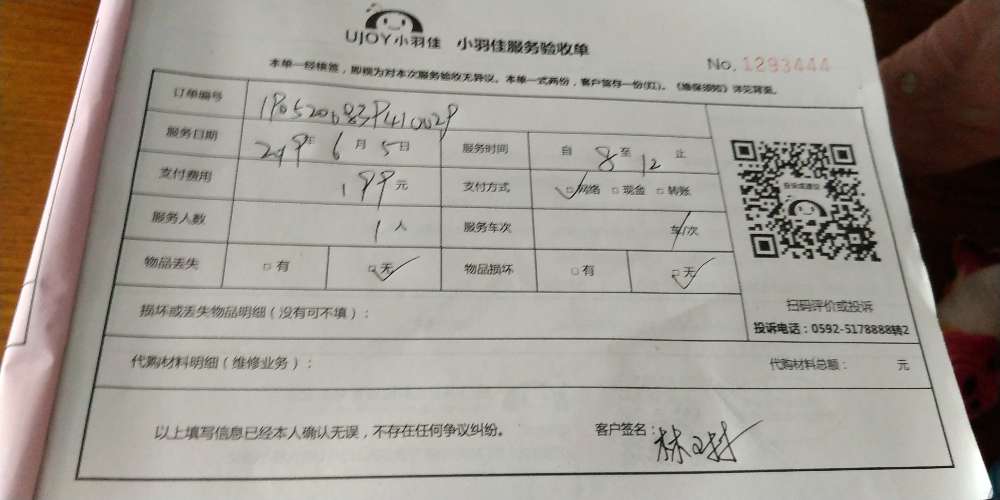 UJOY小羽佳 小羽佳服务验收单
No. 1293444
本单一经核签，即视为对本次服务验收无异议。本单一式两份，客户留存一份(红)。《维保须知》详见背面。
订单编号
服务日期 2019年 6月 5日 服务时间 自 8 至 12 止
支付费用 199元 支付方式 □网络 □现金 □转账
服务人数 1人 服务车次 车/次
物品丢失 □有 □无 物品损坏 □有 □无
投诉或建议
扫码评价或投诉
投诉电话：0592-5178888转2
损坏或丢失物品明细（没有可不填）：
代购材料明细（维修业务）： 代购材料总额： 元
以上填写信息已经本人确认无误，不存在任何争议纠纷。 客户签名：